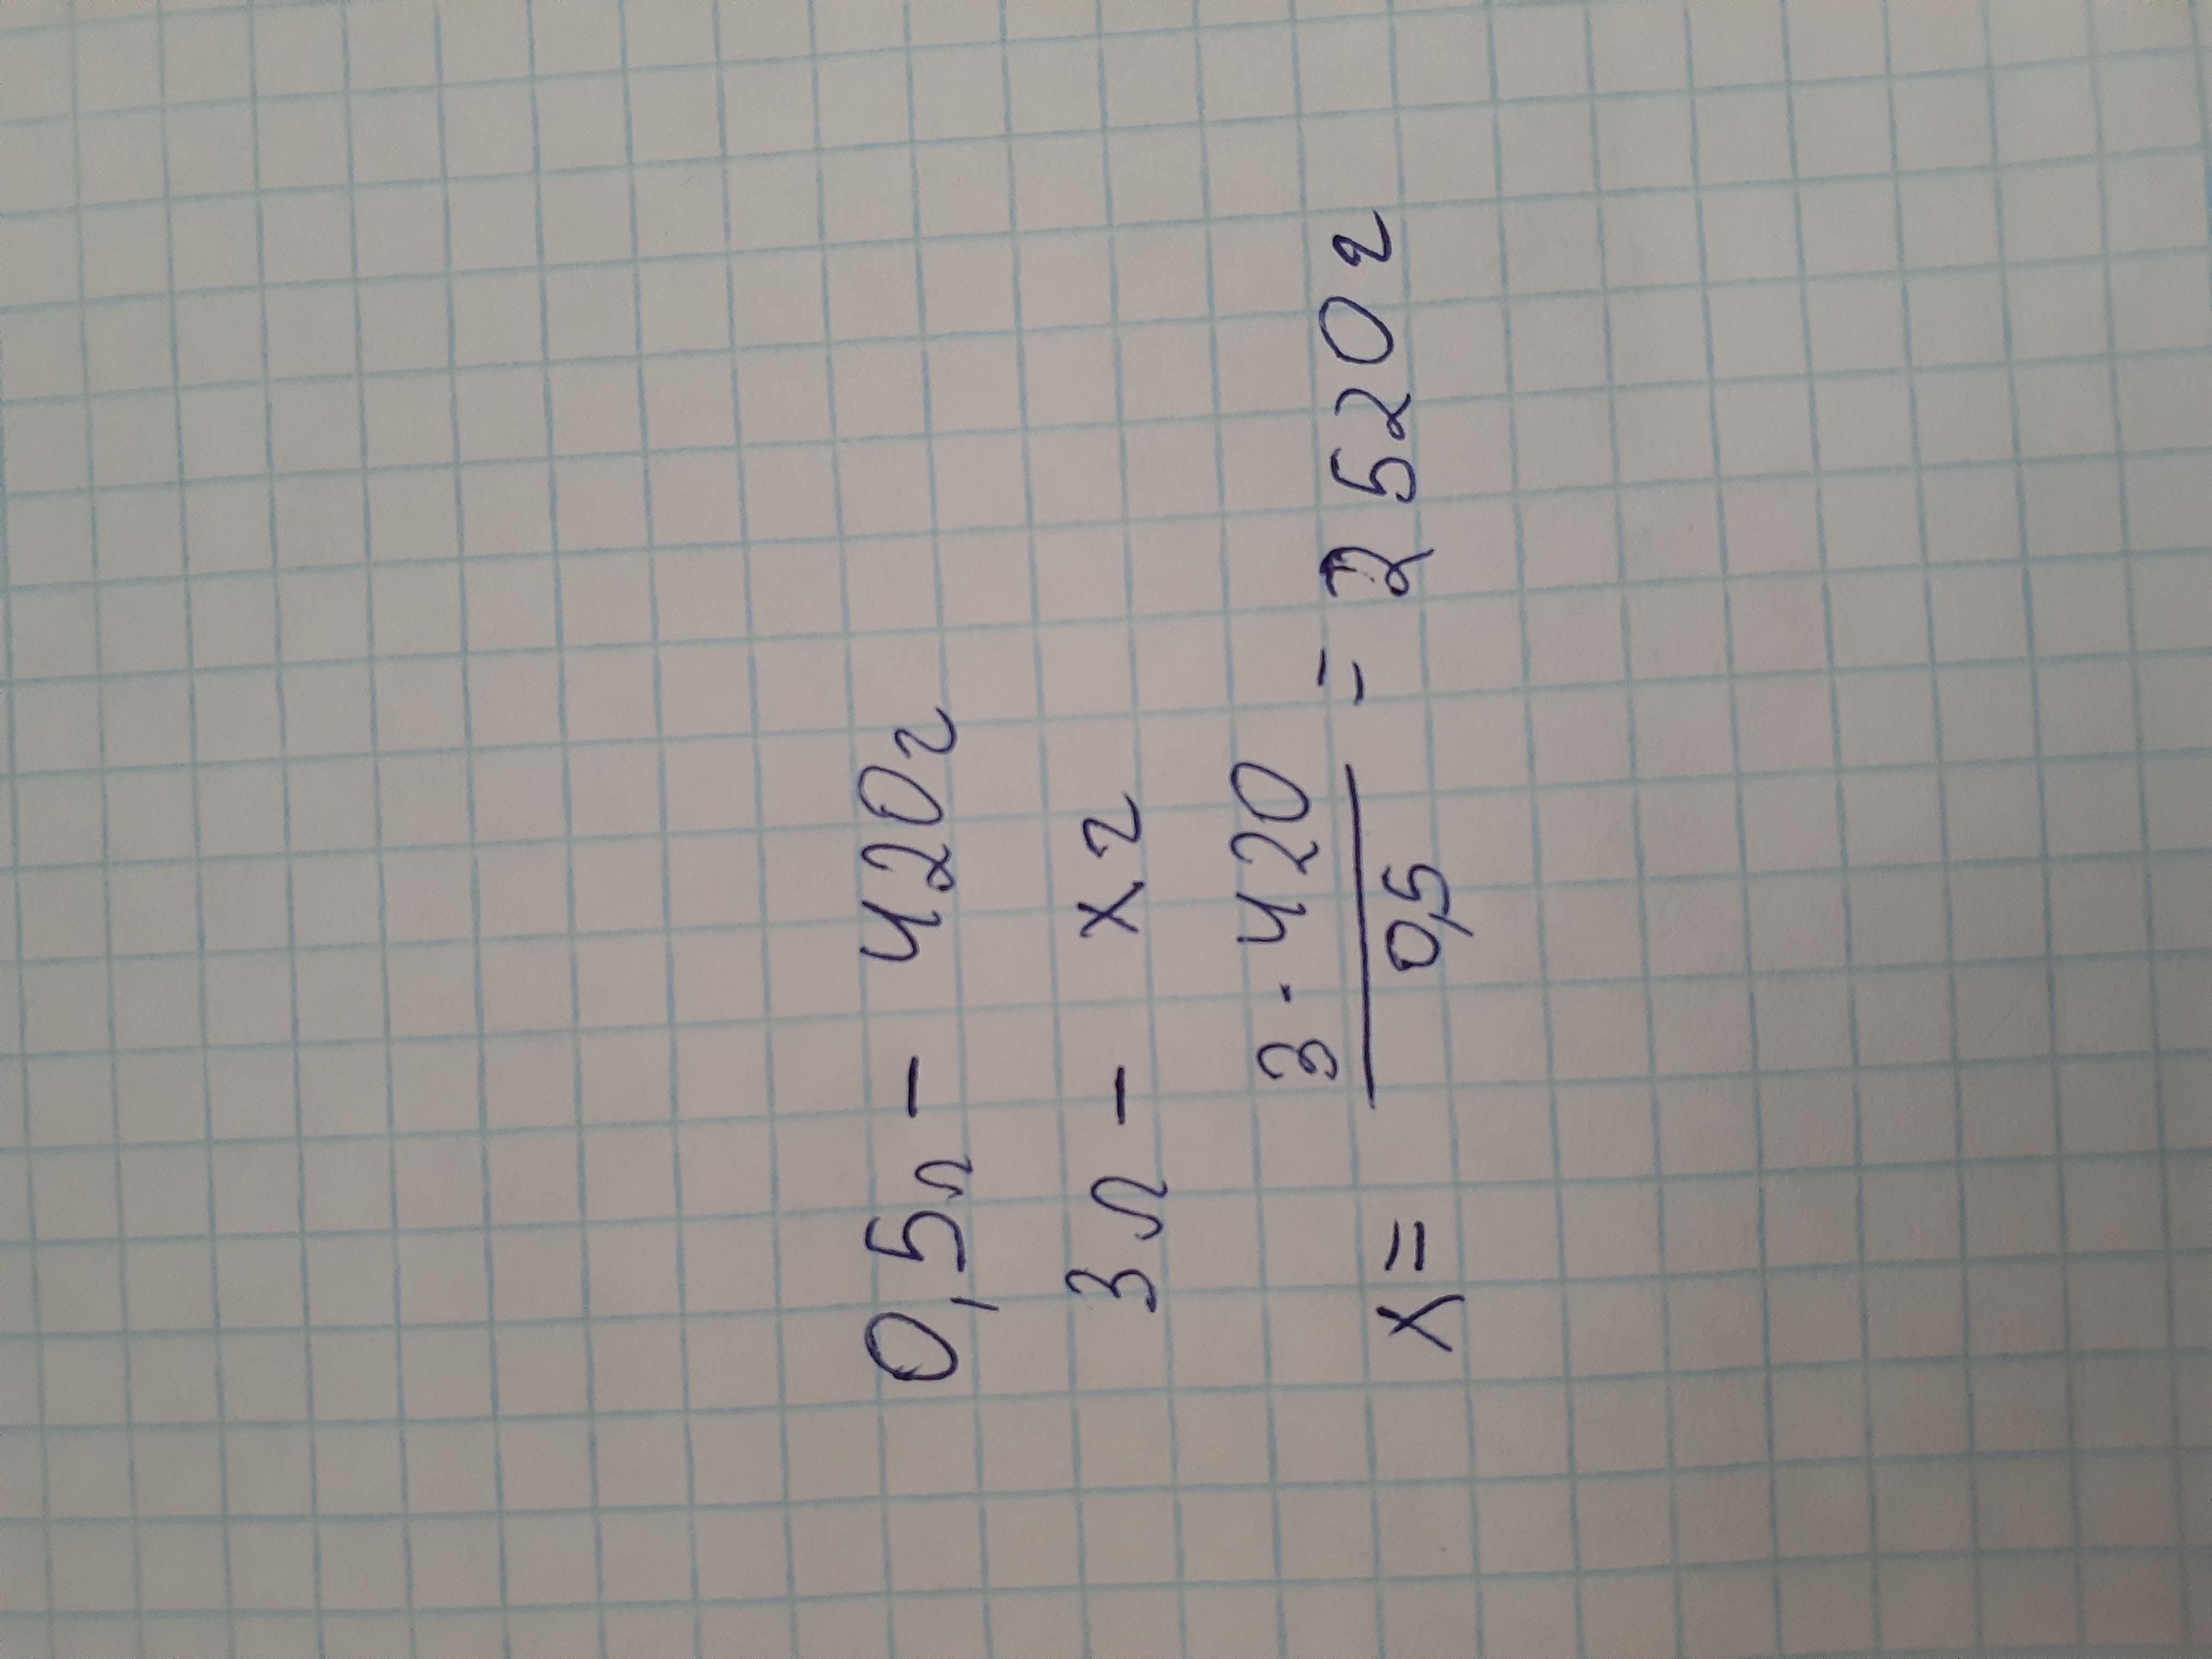 0,5л - 420г
3л - х г
х = 3 · 420 / 0,5 = 2520 г